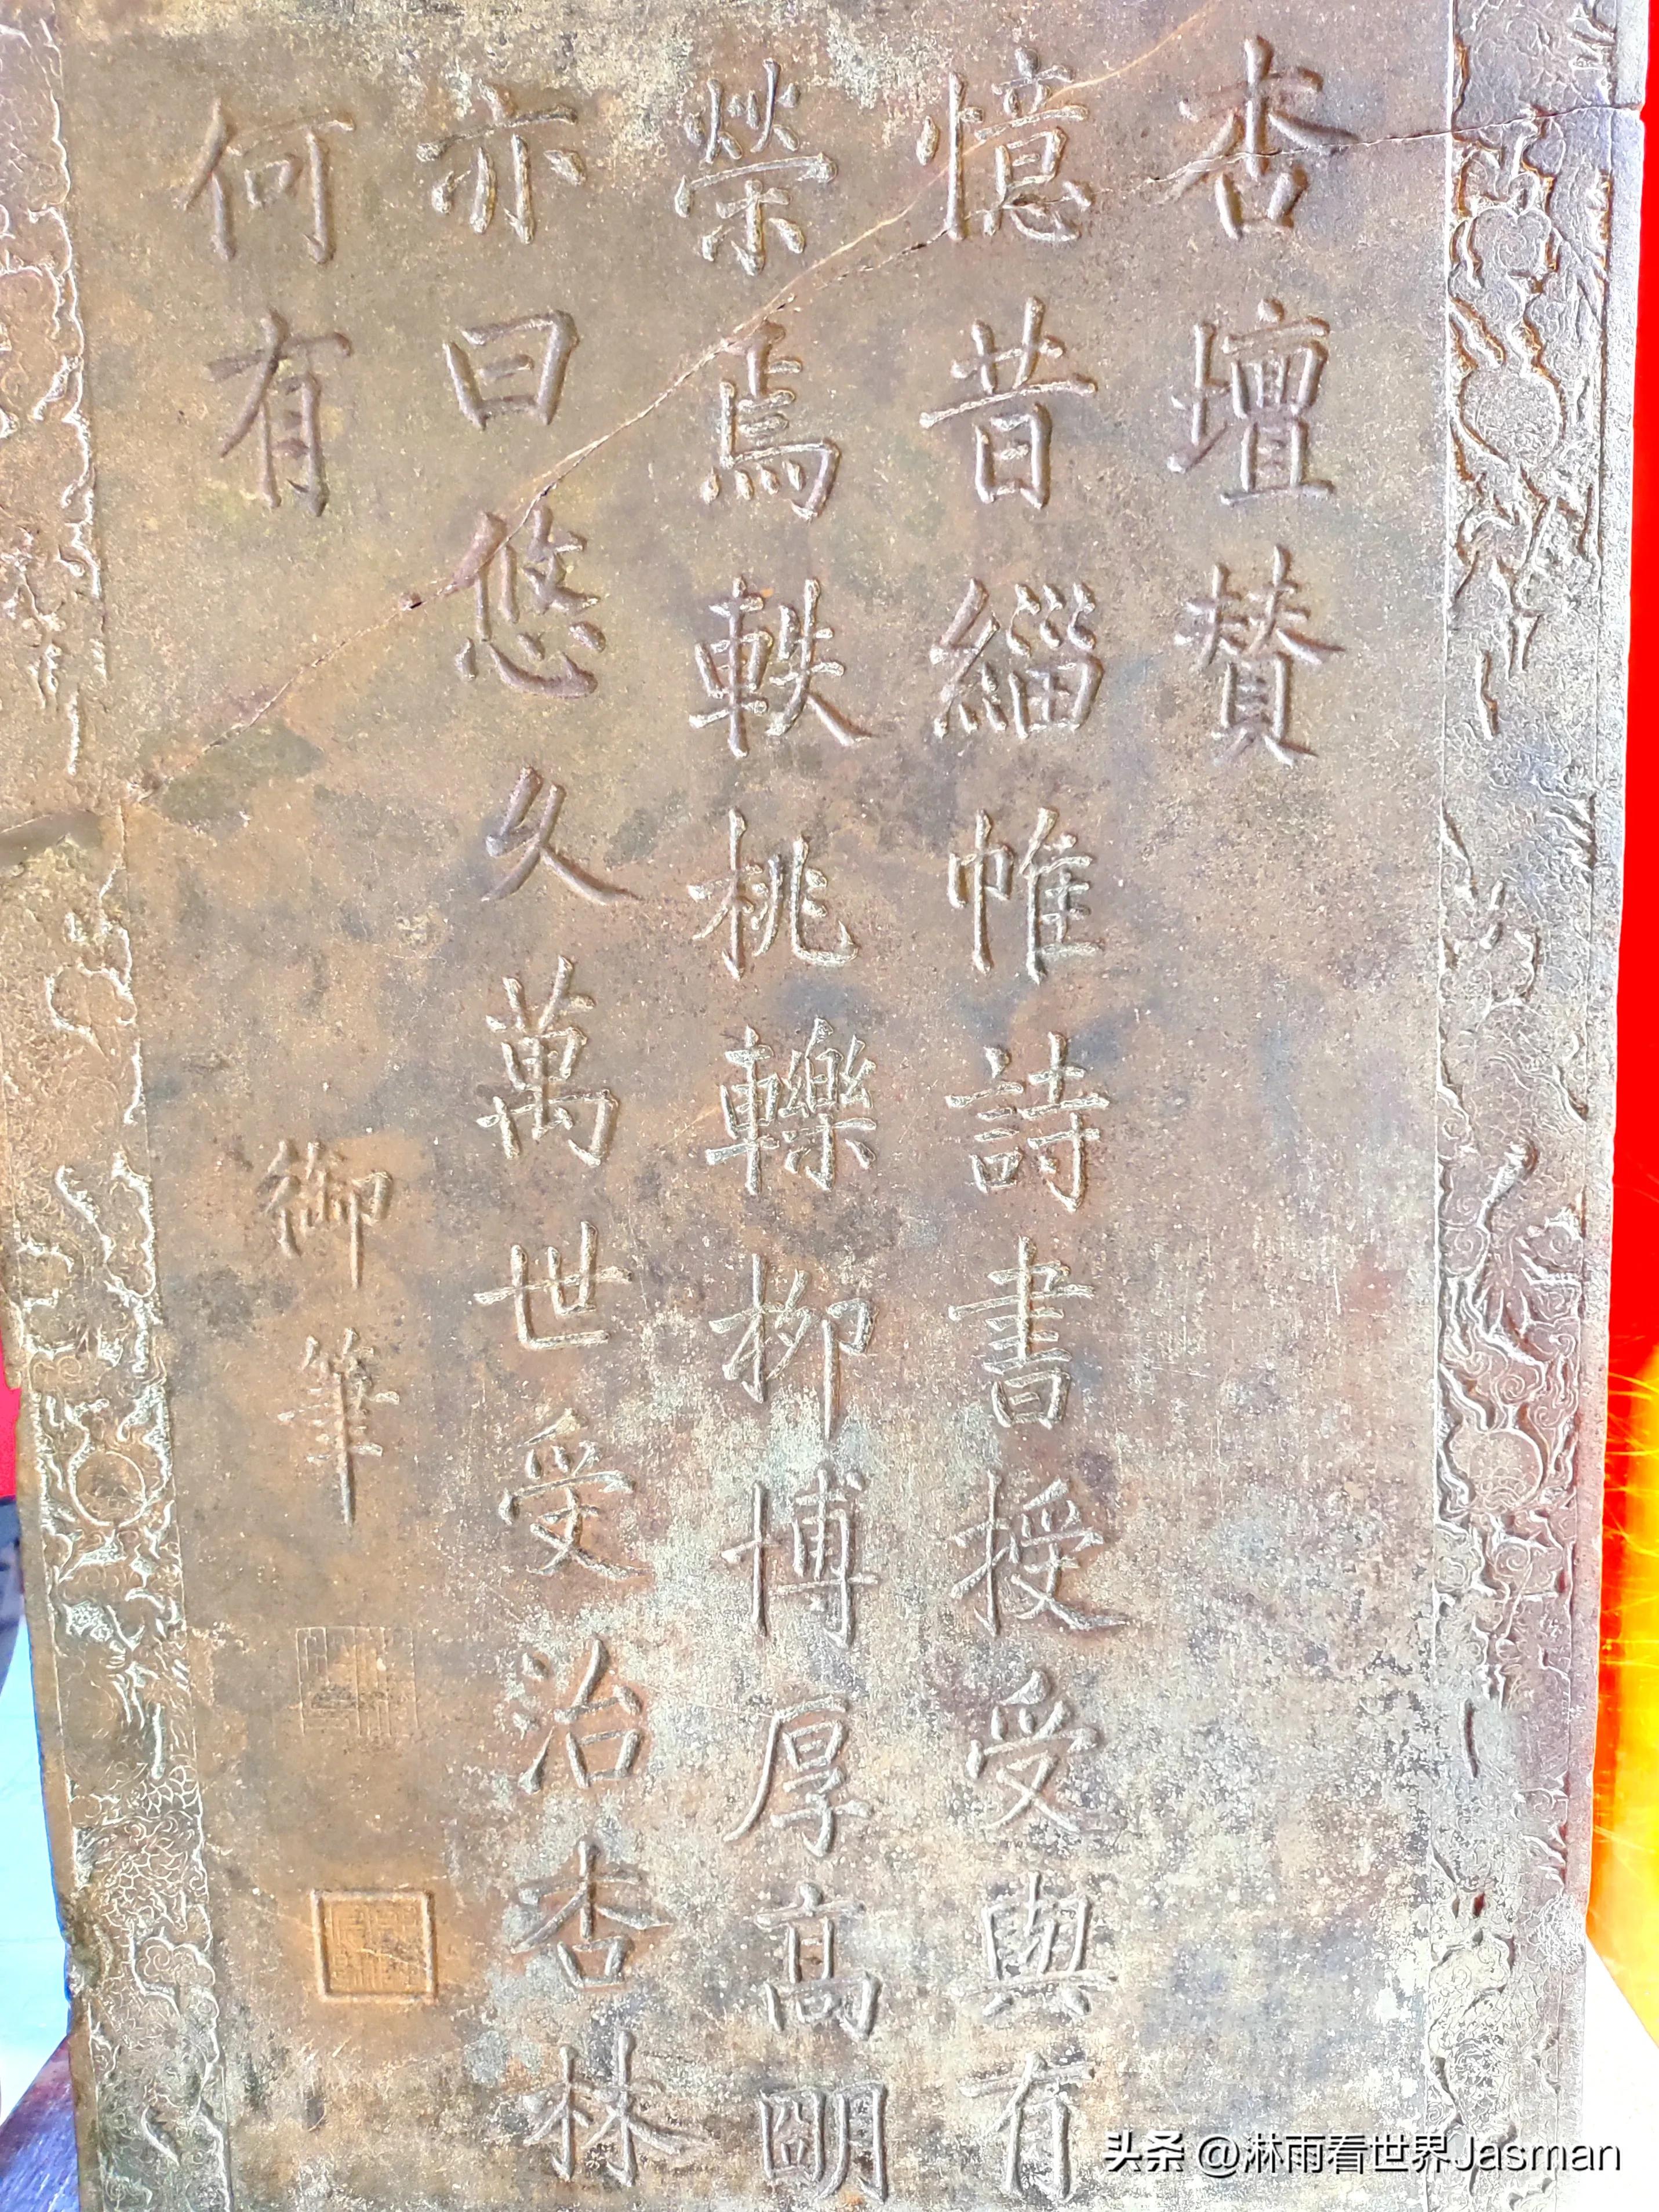 杏壇賛
憶昔緇帷詩書授受與有
榮焉軼桃轢柳博厚高明
亦曰悠久萬世受治杏林
何有
御筆
头条 @淋雨看世界Jasman